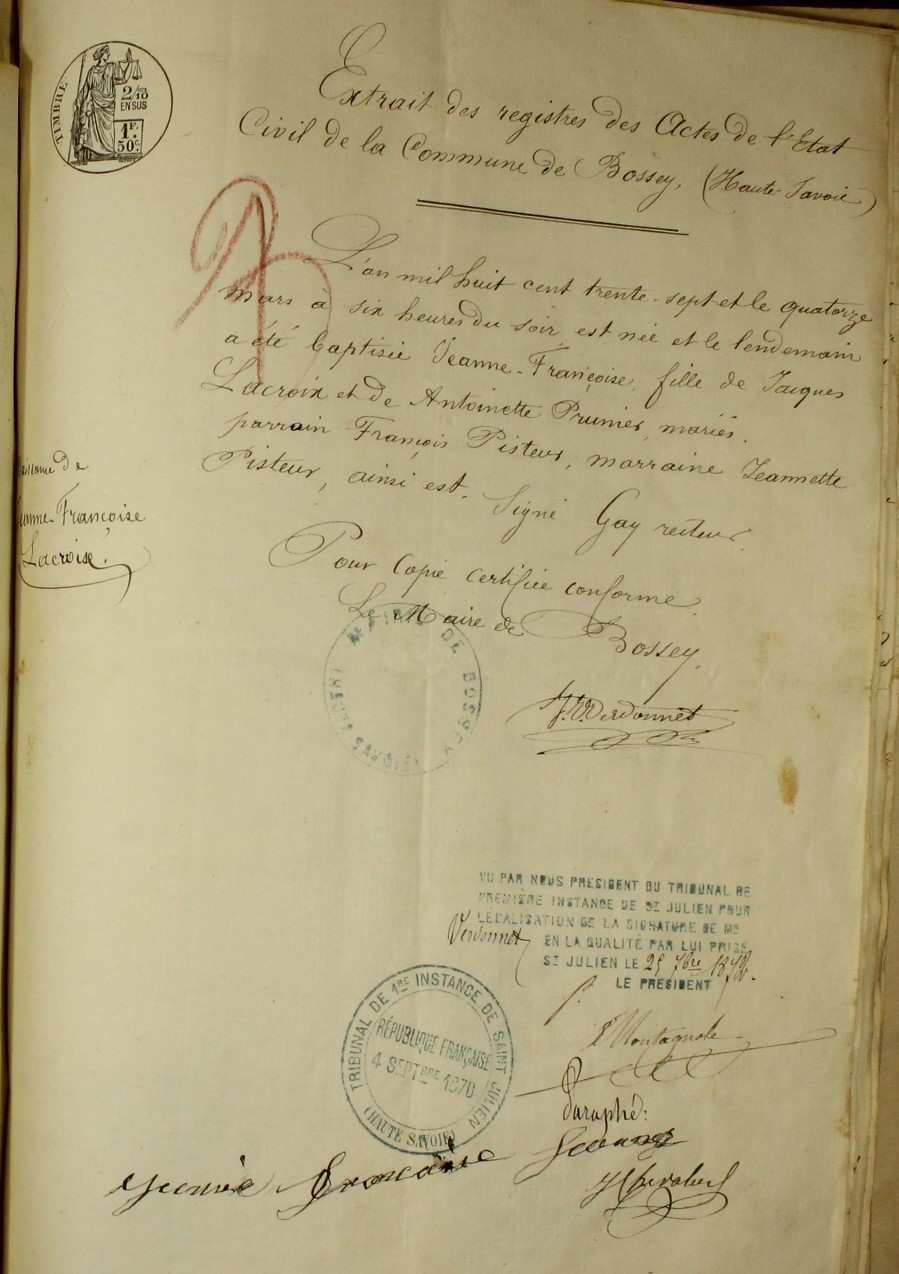 TIMBRE
2/10
EN SUS
1F.
50c.
Extrait des registres des Actes de l'Etat
Civil de la Commune de Bossey, (Haute-Savoie)
L'an mil huit cent trente-sept et le quatorze
mars à six heures du soir, est née et le lendemain
a été baptisée Jeanne-Françoise, fille de Jacques
Lacroix et de Antoinette Prunier, mariés.
parrain François Pisteur, marraine Jeannette
Pisteur, ainsi est. Signé Gay recteur.
de
Françoise
Lacroise.
Pour Copie certifiée conforme
Le Maire de Bossey.
MAIRIE DE BOSSEY
Verdonnet
VU PAR NOUS PRESIDENT DU TRIBUNAL DE
PREMIÈRE INSTANCE DE ST JULIEN POUR
LÉGALISATION DE LA SIGNATURE DE MR
Verdonnet EN LA QUALITÉ PAR LUI PRISE
ST JULIEN LE 25 7bre 1878.
LE PRÉSIDENT
TRIBUNAL DE 1RE INSTANCE DE SAINT JULIEN
(HAUTE SAVOIE)
RÉPUBLIQUE FRANÇAISE
4 SEPTBRE 1870
Paraphé: